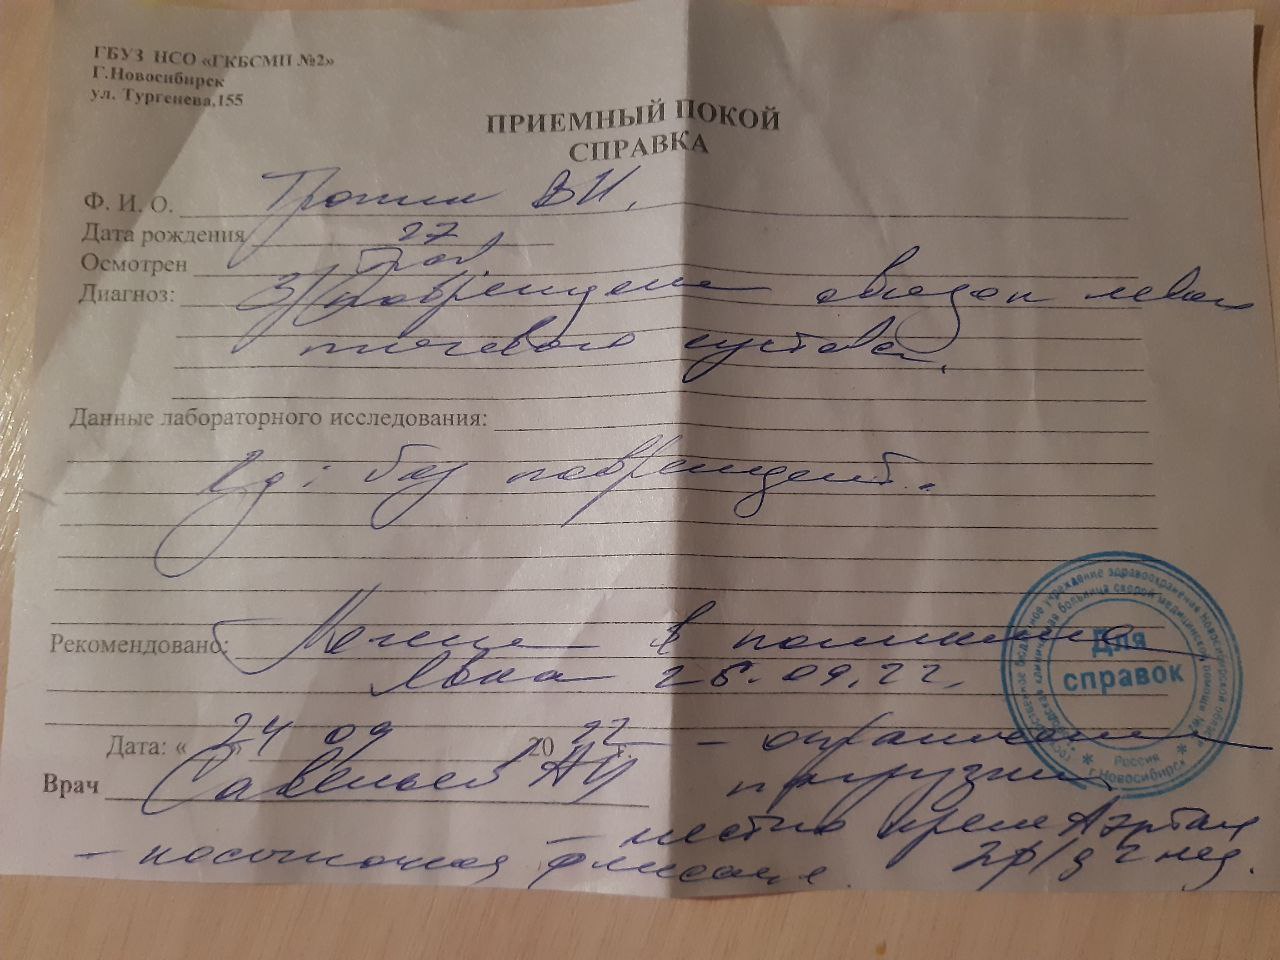 ГБУЗ НСО «ГКБСМП №2»
Г.Новосибирск
ул. Тургенева,155
ПРИЕМНЫЙ ПОКОЙ
СПРАВКА
Ф. И. О. Трошин В И.
Дата рождения 27
Осмотрен Трав.
Диагноз: З/ повреждение связок левого
плечевого сустава.
Данные лабораторного исследования:
без повреждений.
Рекомендовано: Лечение в поликлинике
Явка 26.09.22,
Дата: « 24 09 20 22 г. - ограничение
Врач Савельев А нагрузки
- местно крем Аэртал
- косыночная фиксация. 2р/д 2 нед.
Для
справок
Россия
г.Новосибирск